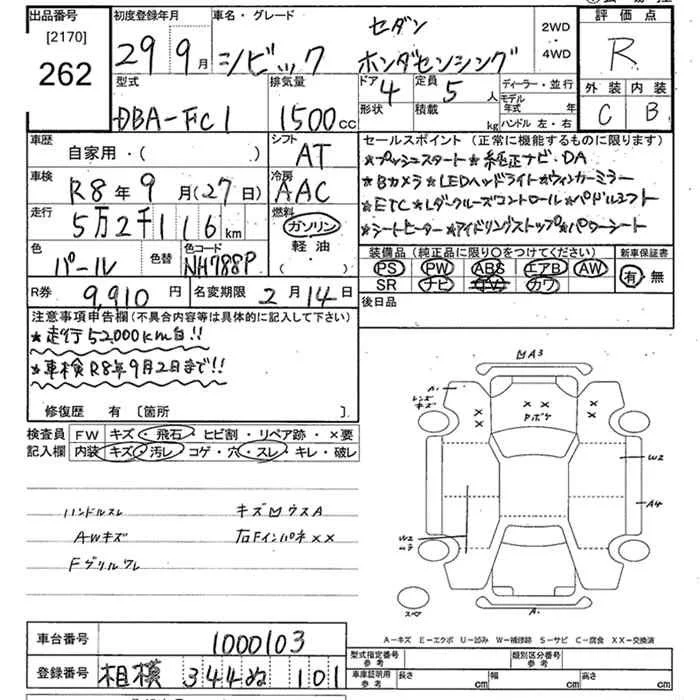 出品番号 初度登録年月 車名・グレード 評価点
[2170]
262
29年9月 シビック セダン ホンダセンシング
2WD
・
4WD
R
型式 排気量 ドア 4 定員 5人 ディーラー・並行 外装 内装
DBA-FC1 1500cc 形状 積載 kg モデル年式 年 C B
ハンドル 左・右
車歴 自家用・( ) シフト AT セールスポイント(正常に機能するものに限ります)
★プッシュスタート★純正ナビ・DA
車検 R8年9月(27日) 冷房 AAC ★Bカメラ★LEDヘッドライト★ウィンカーミラー
★ETC★レーダークルーズコントロール★パドルシフト
走行 5万2千116km 燃料 ガソリン ★シートヒーター★アイドリングストップ★パワーシート
軽油
・( )
色 パール 色替 色コード NH788P 装備品(純正品に限り〇をつけてください) 新車保証書
PS PW ABS エアB AW 有・無
SR ナビ TV カワ
R券 9,910円 名変期限 2月14日 後日品
注意事項申告欄(不具合内容等は具体的に記入して下さい)
★走行52,000km台!!
★車検R8年9月2日まで!!
修復歴 有 [箇所 ].
検査員 FW キズ・飛石・ヒビ割・リペア跡・×要
記入欄 内装 キズ・汚レ・コゲ・穴・スレ・キレ・破レ
ハンドルスレ キズMウスA
AWキズ 右Fインパネ××
Fグリルワレ
MA3
A.
キズ
× × × ×
W2
A4
W2
A.
スペア
A-キズ E-エクボ U-凹み W-補修跡 S-サビ C-腐食 XX-交換済
車台番号 1000103
型式指定番号 参考 類別区分番号 参考
登録番号 相模 344 ぬ 101
車庫証明用 参考 長さ cm 幅 cm 高さ cm